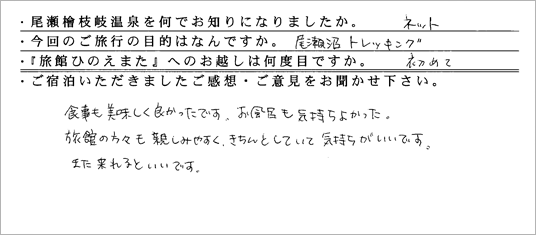 ・尾瀬檜枝岐温泉を何でお知りになりましたか。 ネット
・今回のご旅行の目的はなんですか。 尾瀬沼トレッキング
・『旅館ひのえまた』へのお越しは何度目ですか。 初めて
・ご宿泊いただきましたご感想・ご意見をお聞かせ下さい。
食事も美味しく良かったです。お風呂も気持ちよかった。
旅館の方々も親しみやすく、きちんとしていて気持ちがいいです。
また来れるといいです。